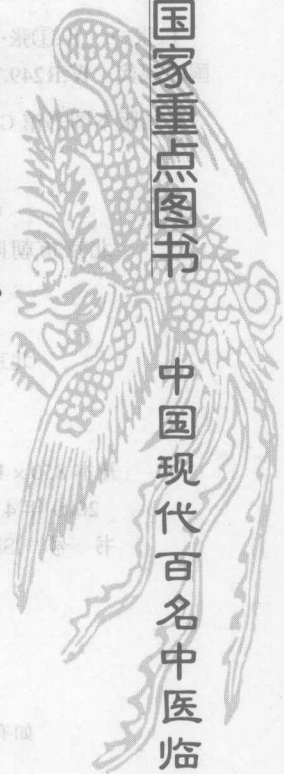 国家重点图书 中国现代百名中医临